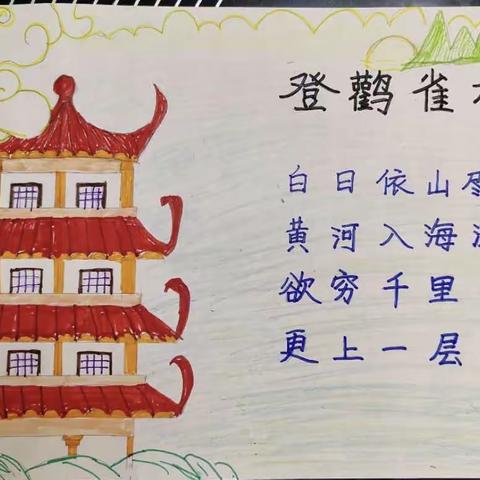 登鹳雀
白日依山
黄河入海
欲穷千里
更上一层